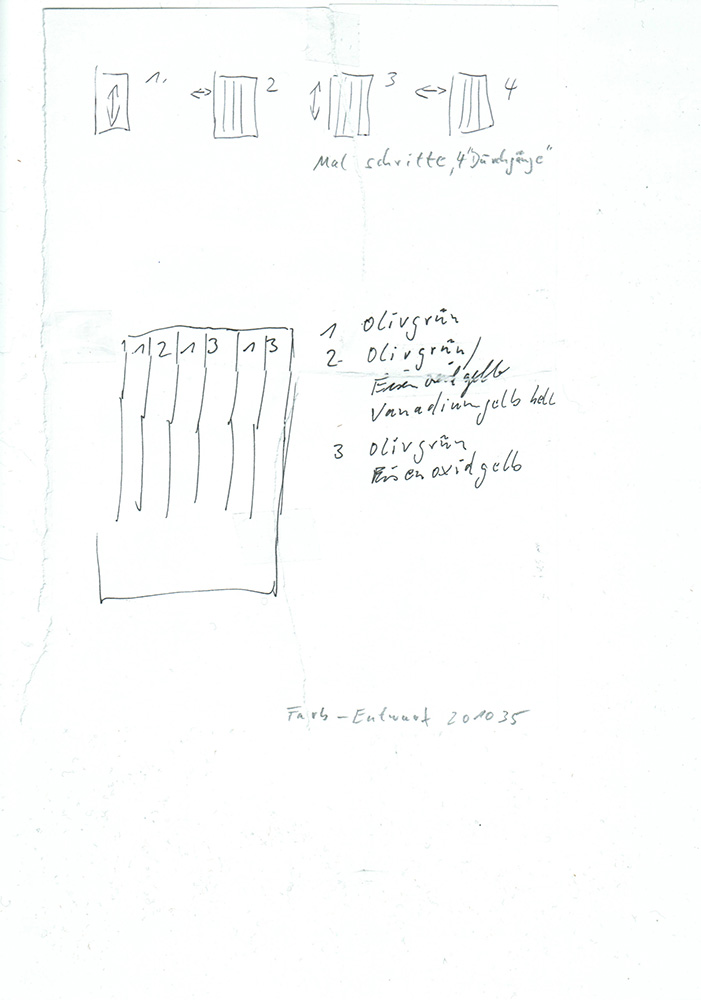 1. 2 3 4
Mal schritte, 4 "Durchgänge"
1 2 1 3 1 3
1 Olivgrün
2 Olivgrün/
Eisenoxidgelb
Vanadiumgelb hell
3 Olivgrün
Eisenoxidgelb
Farb-Entwurf 201035